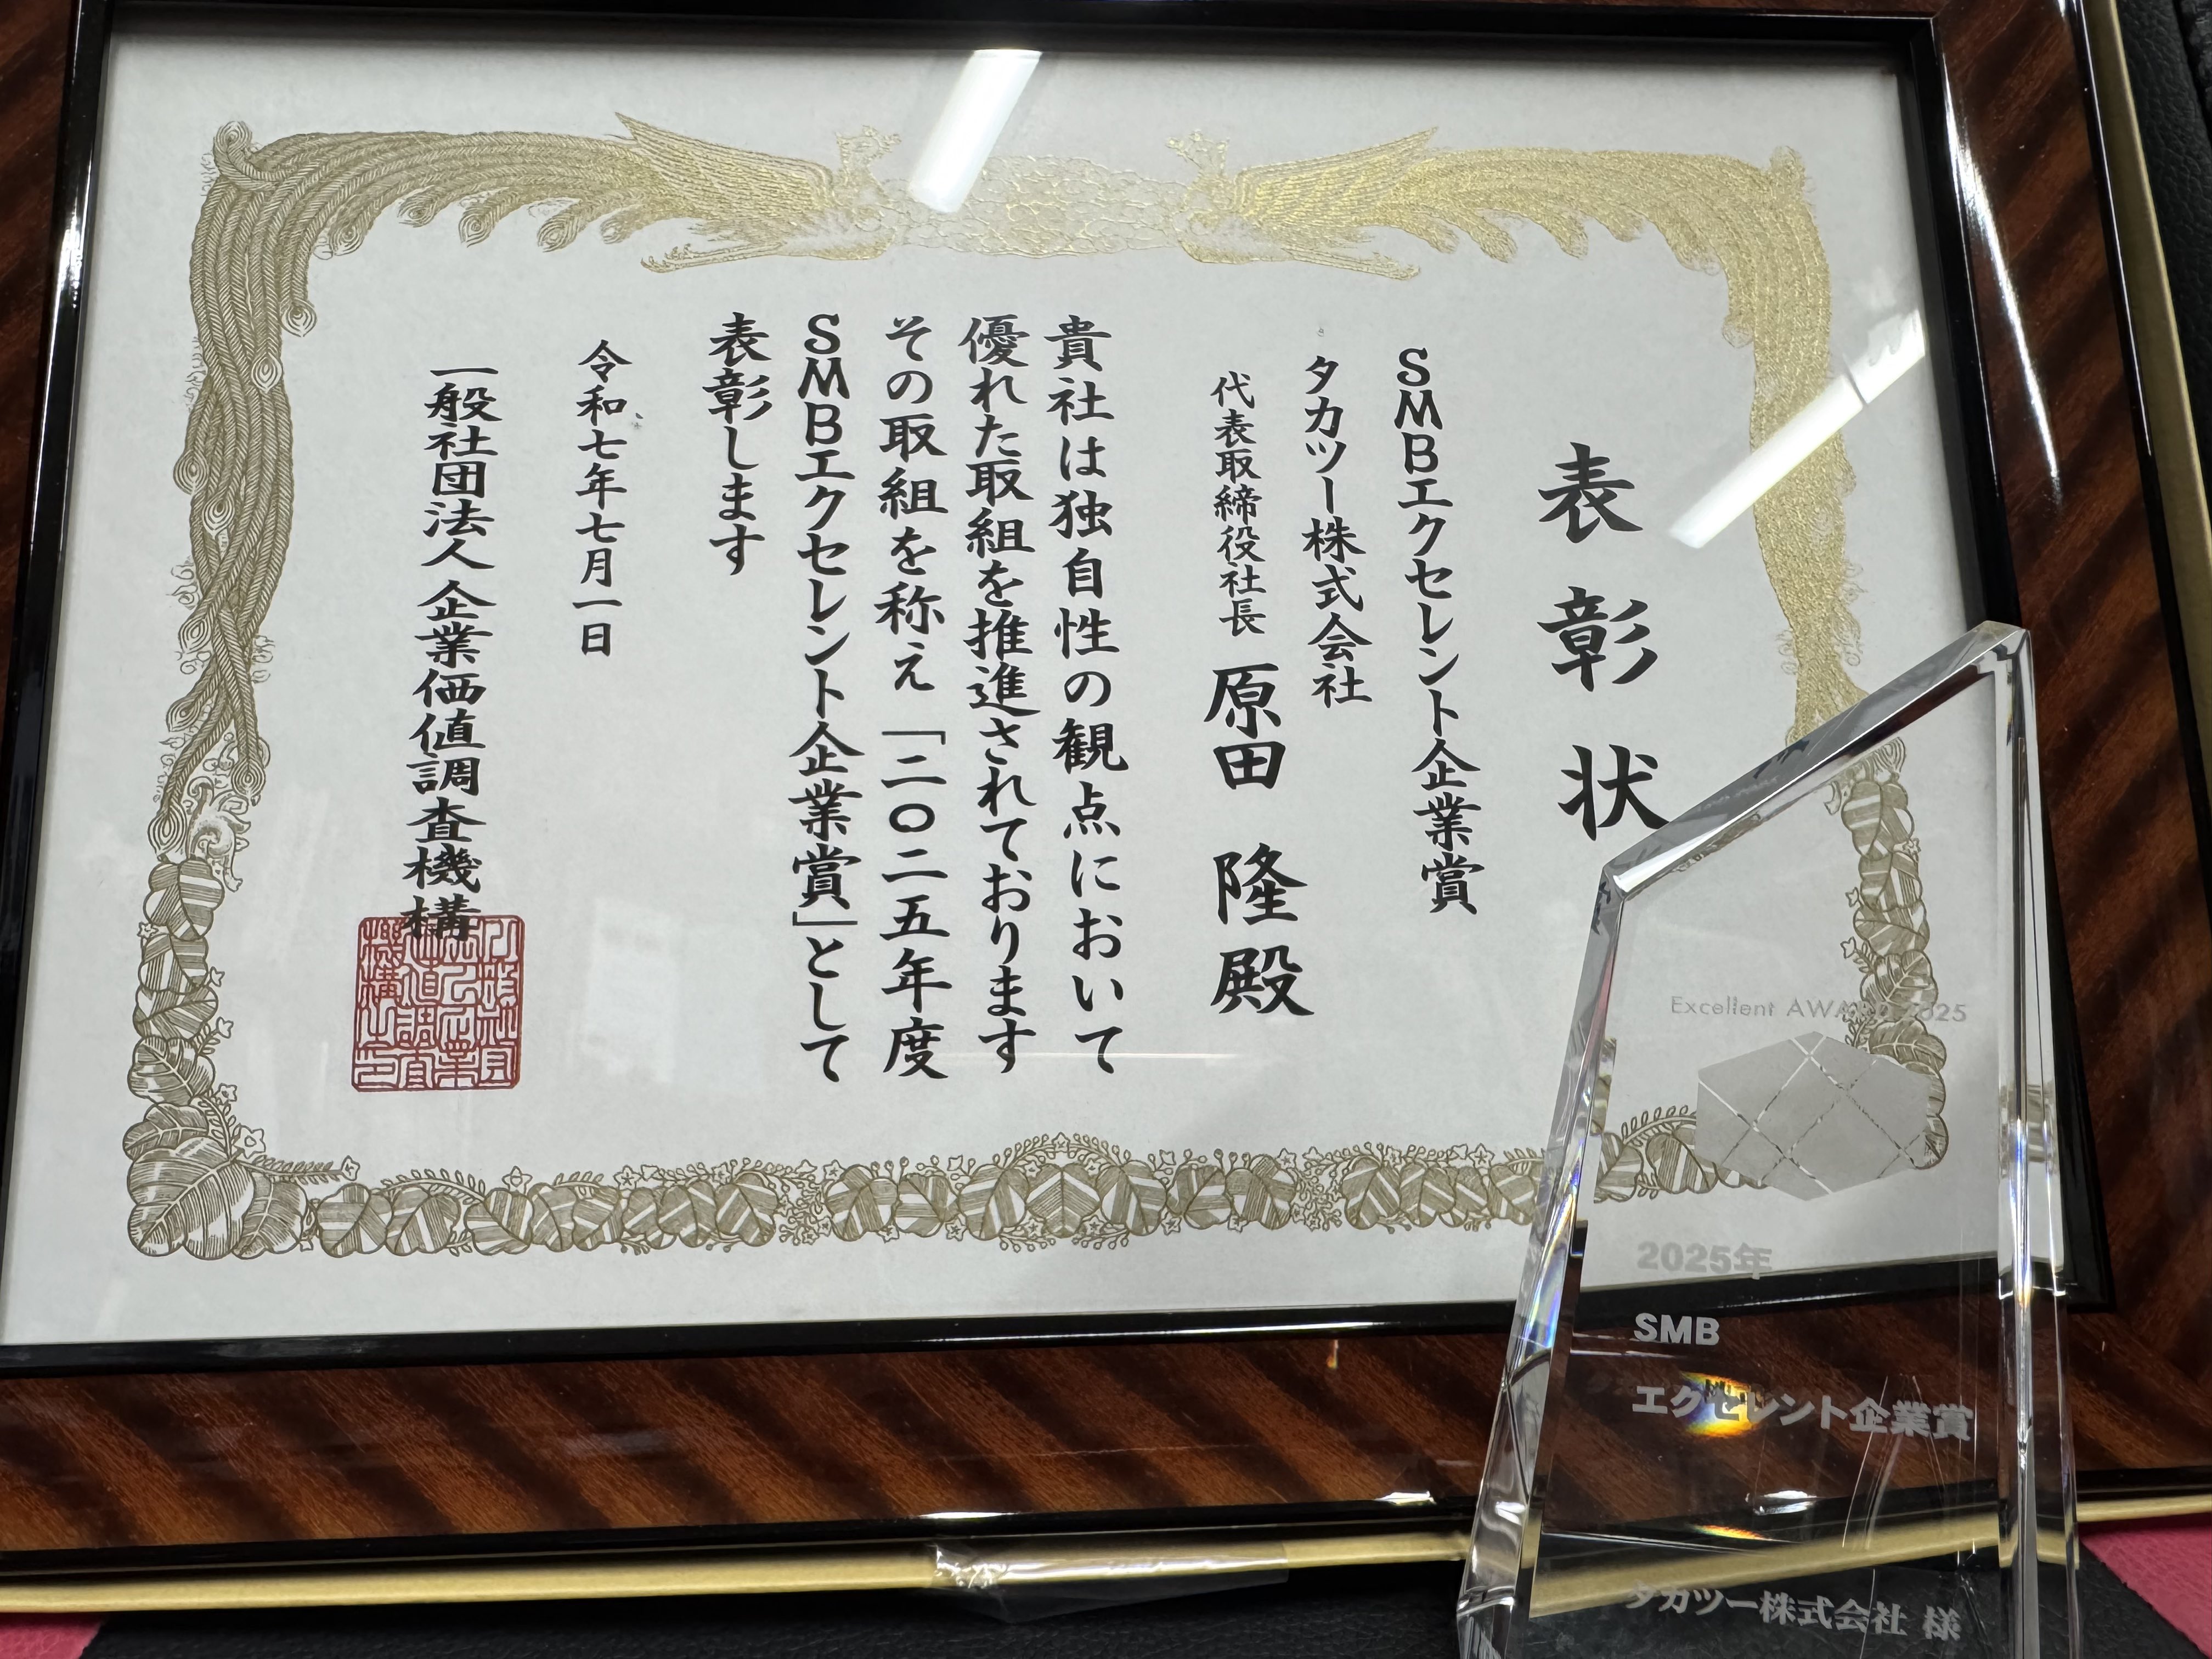 表彰状
SMBエクセレント企業賞
タカツー株式会社
代表取締役社長 原田 隆 殿
貴社は独自性の観点において
優れた取組を推進されております
その取組を称え「二〇二五年度
SMBエクセレント企業賞」として
表彰します
令和七年七月一日
一般社団法人 企業価値調査機構
Excellent AWARD 2025
2025年
SMB
エクセレント企業賞
タカツー株式会社 様